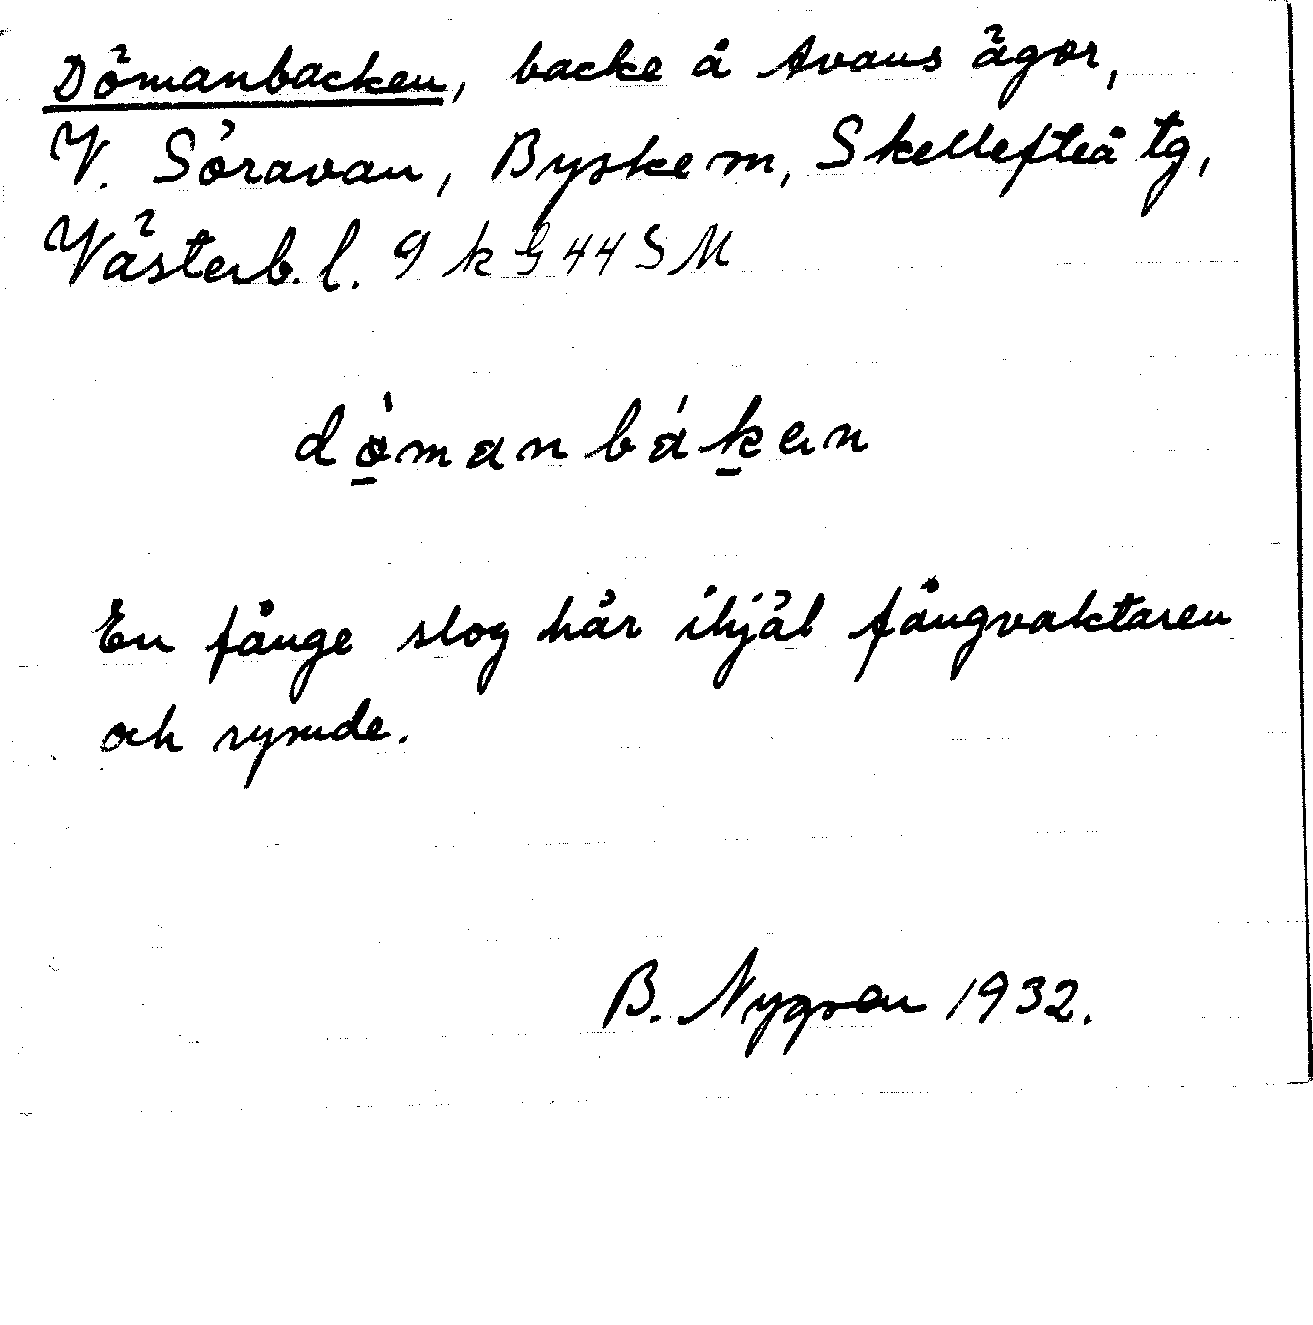 Dömanbacken, backe å Avans ägor,
V. Söravan, Byske m, Skellefteå tg,
Västerb. l. 9 k G 44 S M
dö̀manbákan
En fånge slog här ihjäl fångvaktaren
och rymde.
B. Nygren 1932.